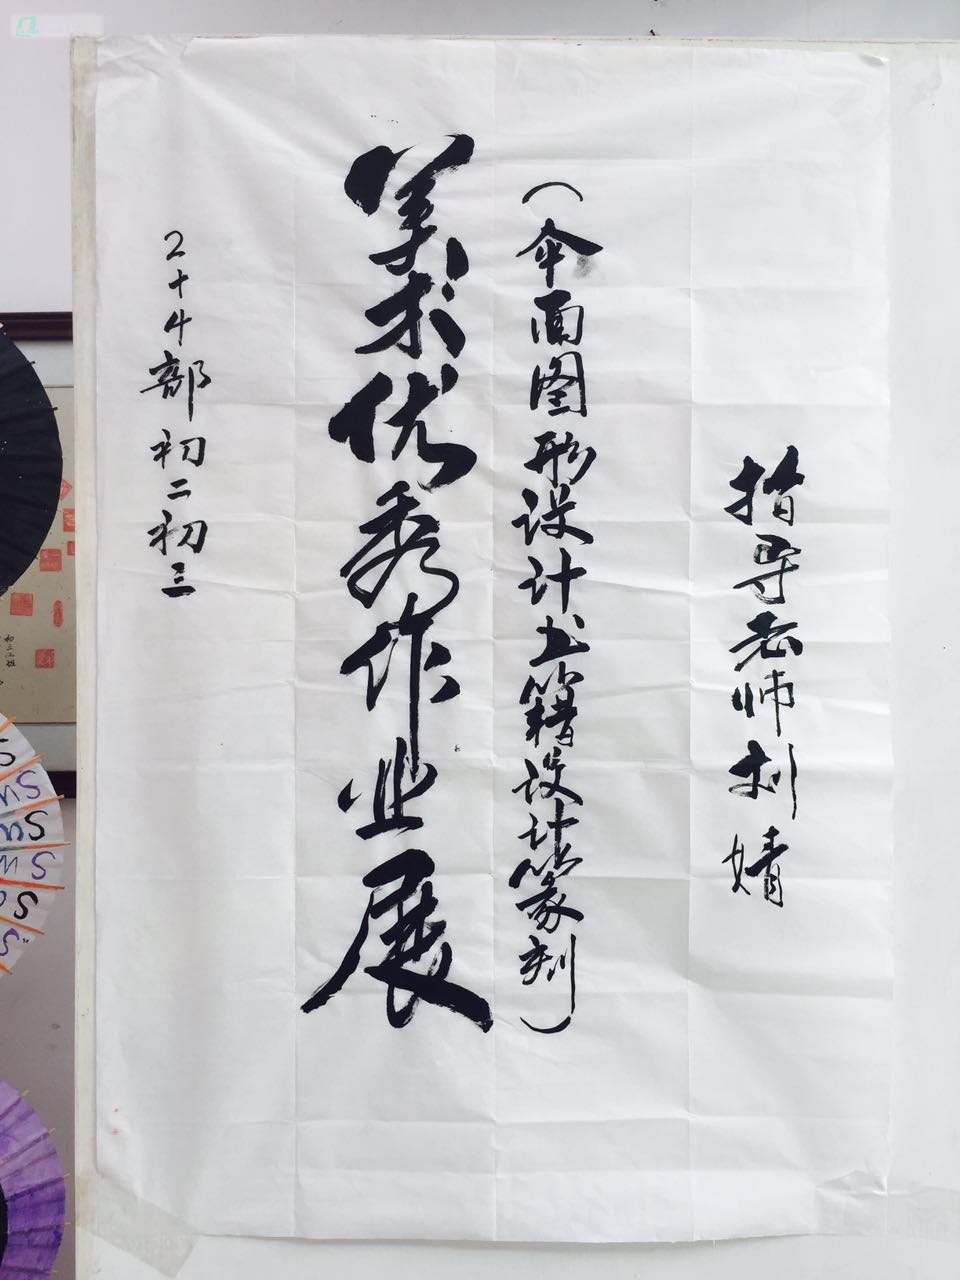 部初二初三
美术优秀作业展
（伞面图形设计书籍设计篆刻）
指导老师刘婧